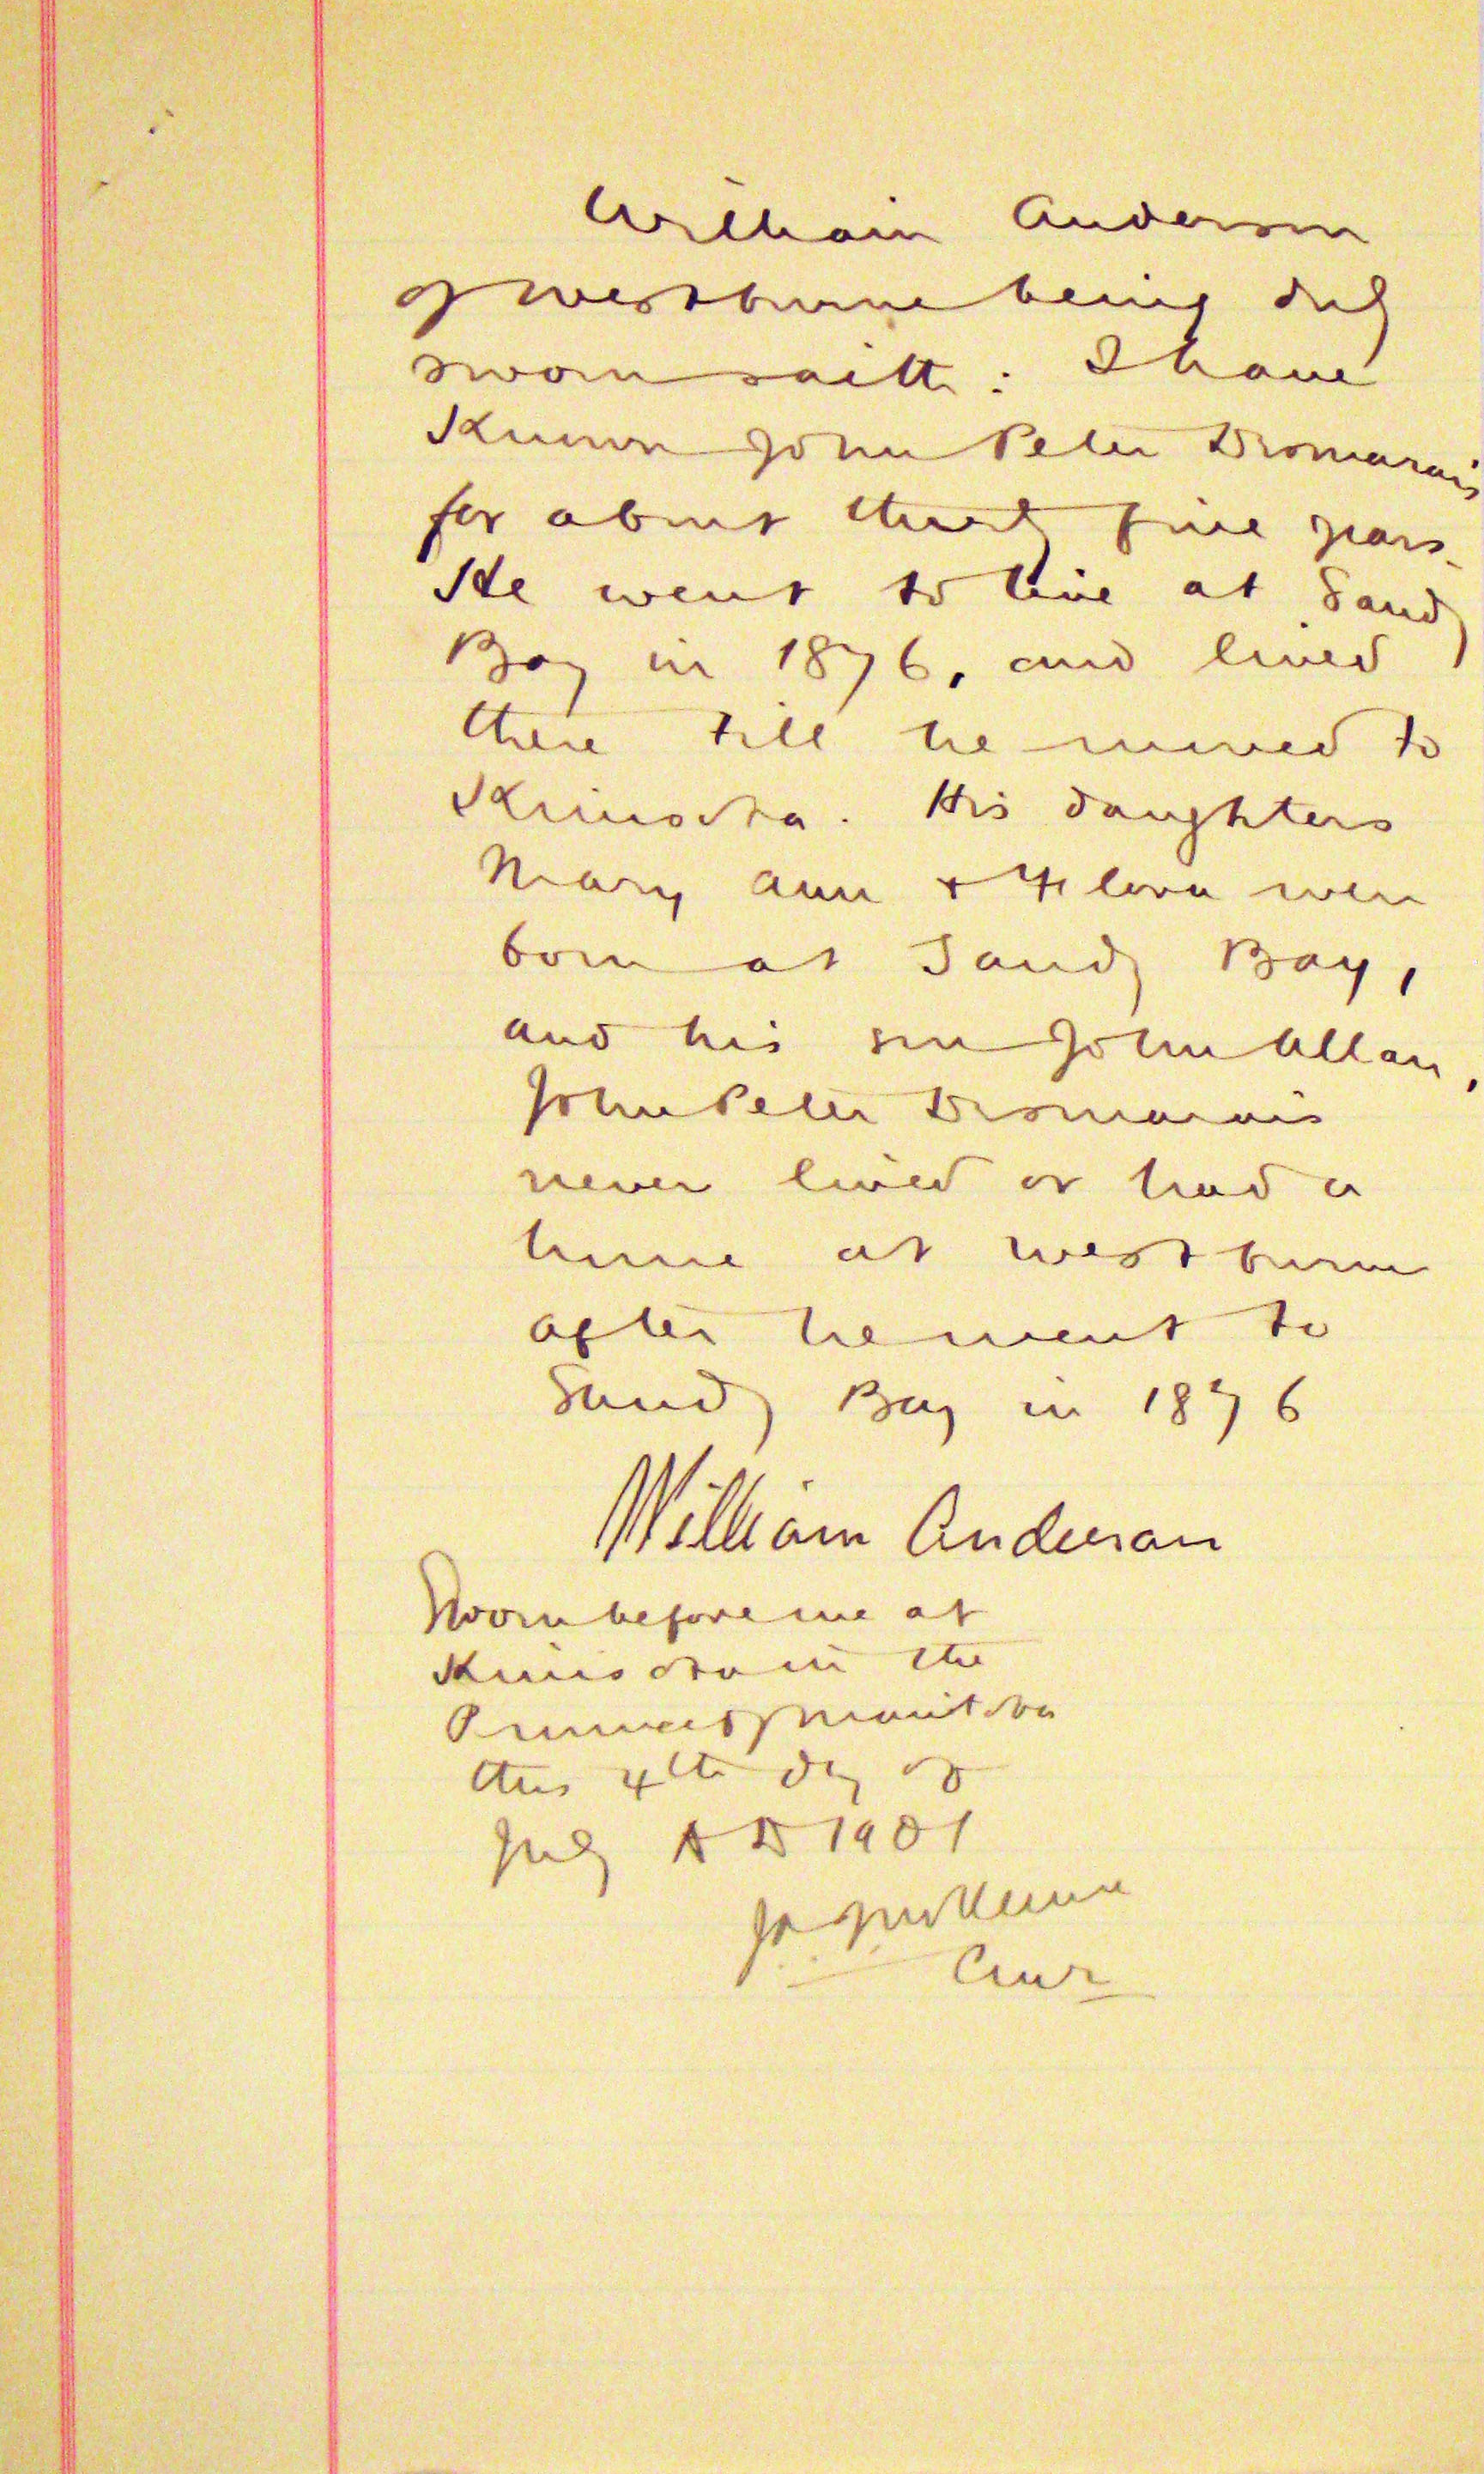 William Anderson
of Westburne being duly
sworn saith: I have
Known John Peter Desmarais
for about thirty five years.
He went to live at Sandy
Bay in 1876, and lived
there till he moved to
Kinosota. His daughters
Mary Ann + Flora were
born at Sandy Bay,
and his son John Allan,
John Peter Desmarais
never lived or had a
home at Westburne
after he went to
Sandy Bay in 1876
William Anderson
Sworn before me at
Kinosota in the
Province of Manitoba
this 4th day of
July AD 1901
Comr